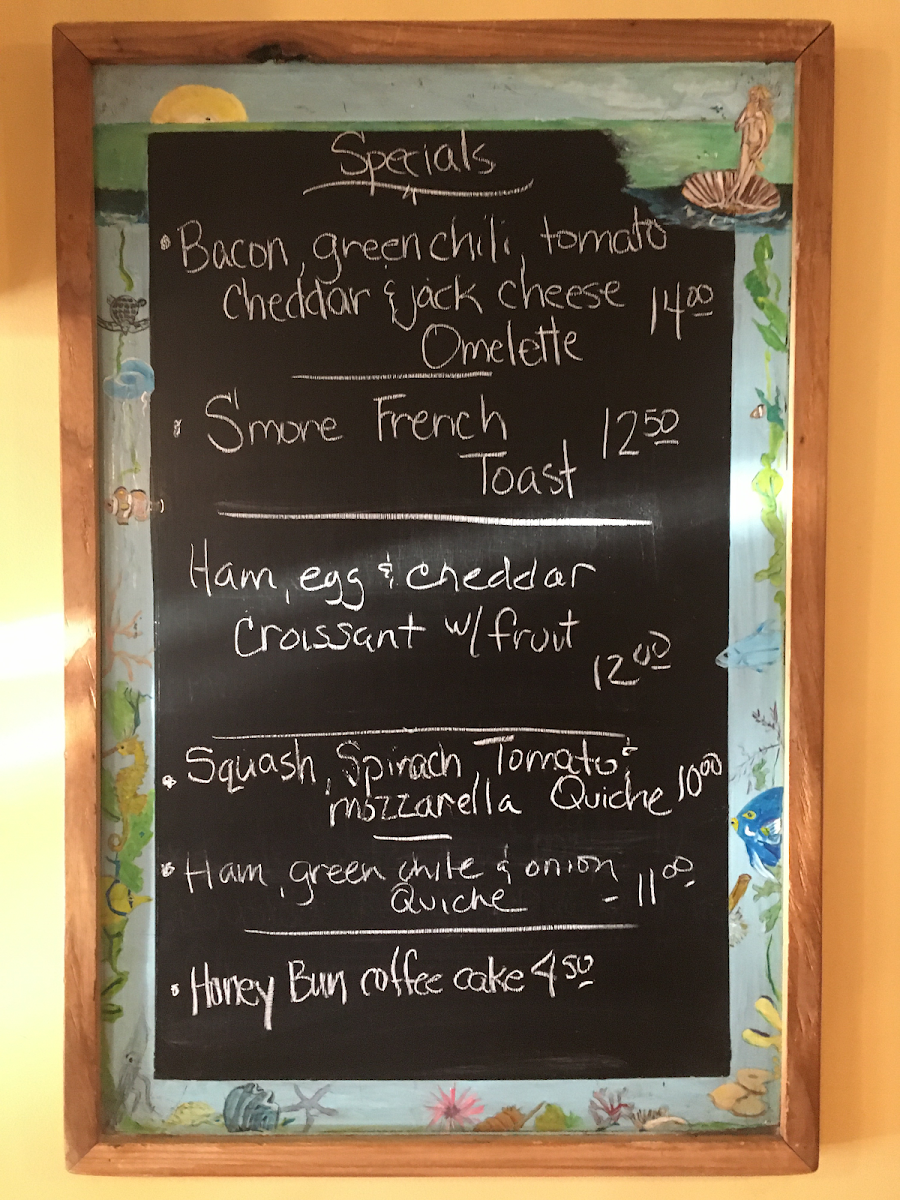 Specials
• Bacon, green chili, tomato
cheddar & jack cheese 14.00
Omelette
• S'more French 12.50
Toast
Ham, egg & cheddar
croissant w/ fruit
12.00
• Squash, Spinach, Tomato &
mozzarella Quiche 10.00
• Ham, green chile & onion
Quiche - 11.00
• Honey Bun coffee cake 4.50